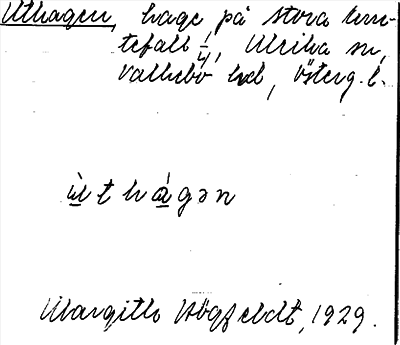 Uthagen, hage på stora kvu-
tefall 1/4, Ulrika sn,
Valkebo hd, Österg. l.
ùthágən
Margith Högfeldt, 1929.